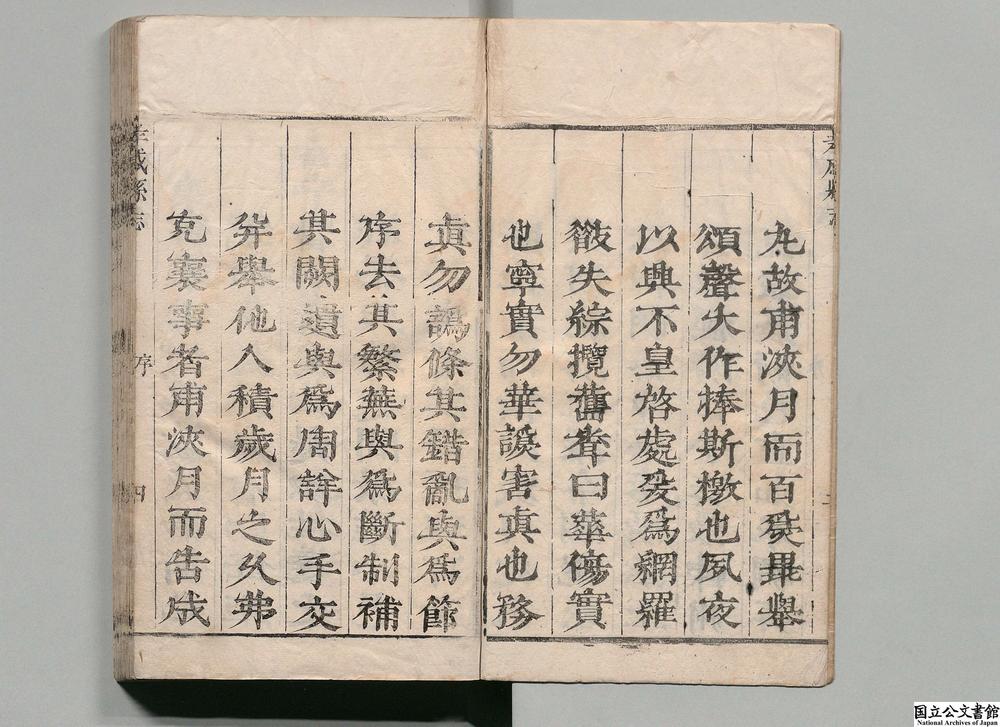 丸故甫浹月而百癈畢舉
頌聲大作捧斯檄也夙夜
以興不皇啓處爰爲網羅
散失綜攬舊章曰華傷實
也寧實勿華諼害真也務
真勿譌條其錯亂與爲節
序去其繁蕪與爲斷制補
其闕遺與爲周詳心手交
并舉他人積歲月之久弗
克襄事者甫浹月而告成
縣志 序 四
国立公文書館
National Archives of Japan